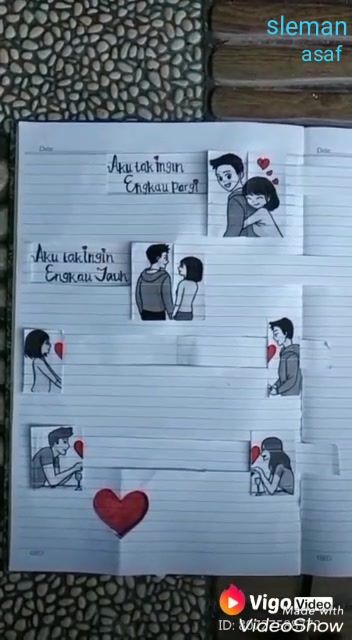 sleman
asaf
Date
Date
Aku tak ingin
Engkau pergi
Aku tak ingin
Engkau Jauh
Vigo Video
Made with
ID:
VideoShow